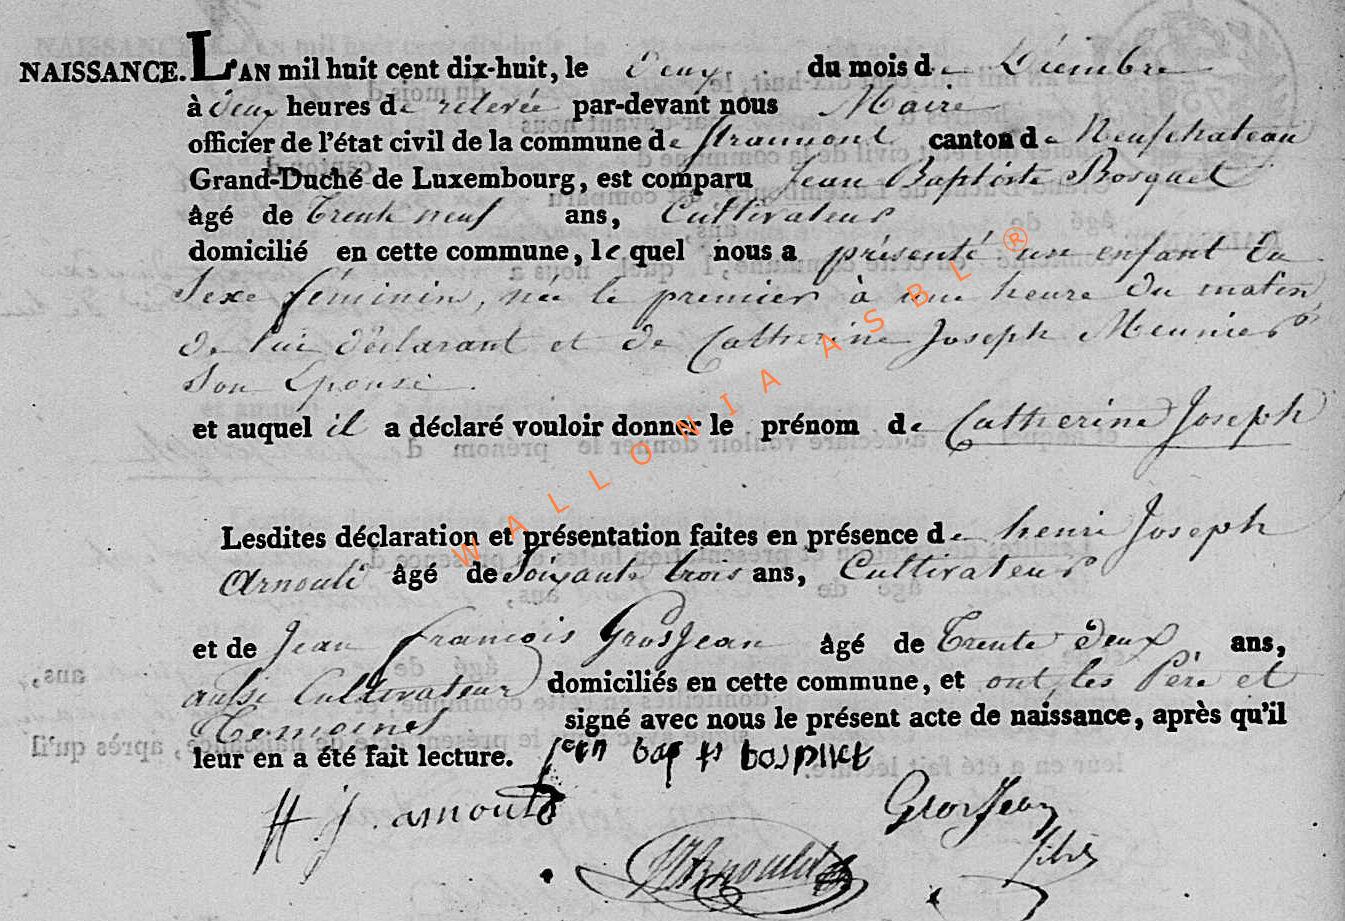 NAISSANCE. L'AN mil huit cent dix-huit, le Deux du mois de Décembre
à Deux heures de relevée par-devant nous Maire
officier de l'état civil de la commune de Straimont canton de Neufchateau
Grand-Duché de Luxembourg, est comparu Jean Baptiste Bosquet
âgé de Trente neuf ans, Cultivateur
domicilié en cette commune, le quel nous a présenté un enfant du
Sexe féminin, née le premier à une heure du matin,
de lui déclarant et de Catherine Joseph Meunier
Son Epouse.
et auquel il a déclaré vouloir donner le prénom de Catherine Joseph
Lesdites déclaration et présentation faites en présence de henri Joseph
Arnould âgé de Soixante trois ans, Cultivateur
et de Jean francois GrosJean âgé de Trente deux ans,
aussi Cultivateur domiciliés en cette commune, et ont, les Père et
Temoins signé avec nous le présent acte de naissance, après qu'il
leur en a été fait lecture. Jean bap ts bosquet
H. j. arnould
GrosJean
fils
Arnould
WALLONIA ASBL ®